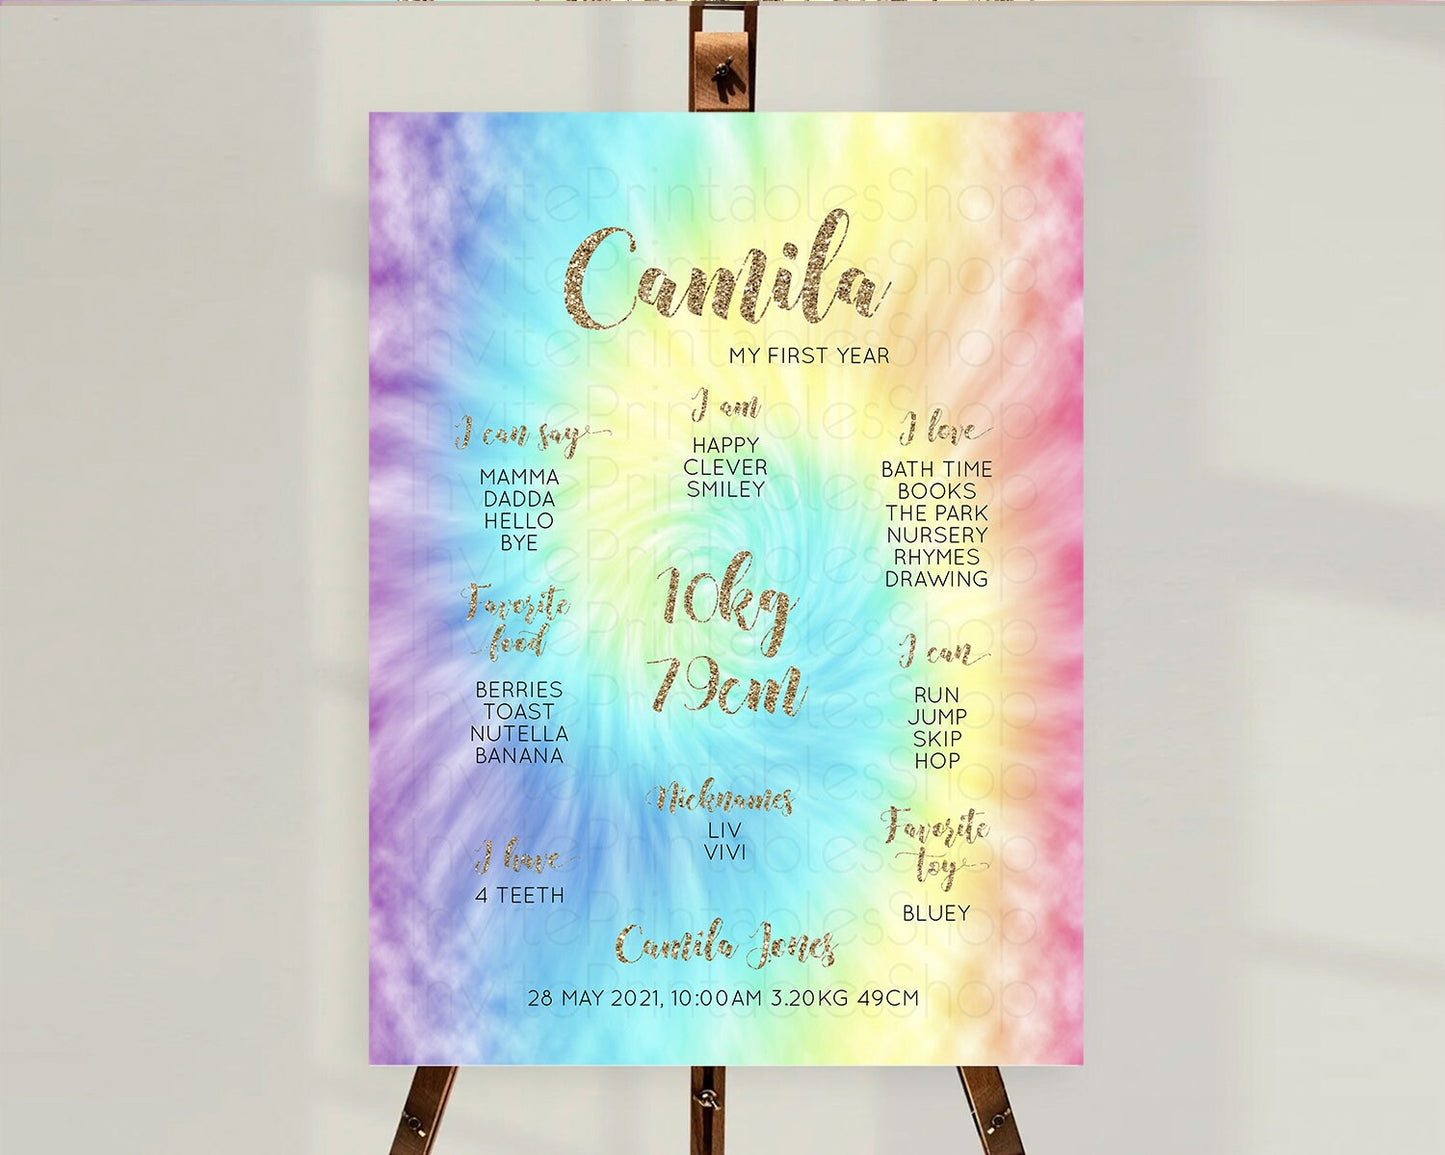 Camila
MY FIRST YEAR
I can say
MAMMA
DADDA
HELLO
BYE
Favorite
food
BERRIES
TOAST
NUTELLA
BANANA
I have
4 TEETH
I am
HAPPY
CLEVER
SMILEY
10kg
79cm
Nicknames
LIV
VIVI
I love
BATH TIME
BOOKS
THE PARK
NURSERY
RHYMES
DRAWING
I can
RUN
JUMP
SKIP
HOP
Favorite
toy
BLUEY
Camila Jones
28 MAY 2021, 10:00AM 3.20KG 49CM
InvitePrintablesShop